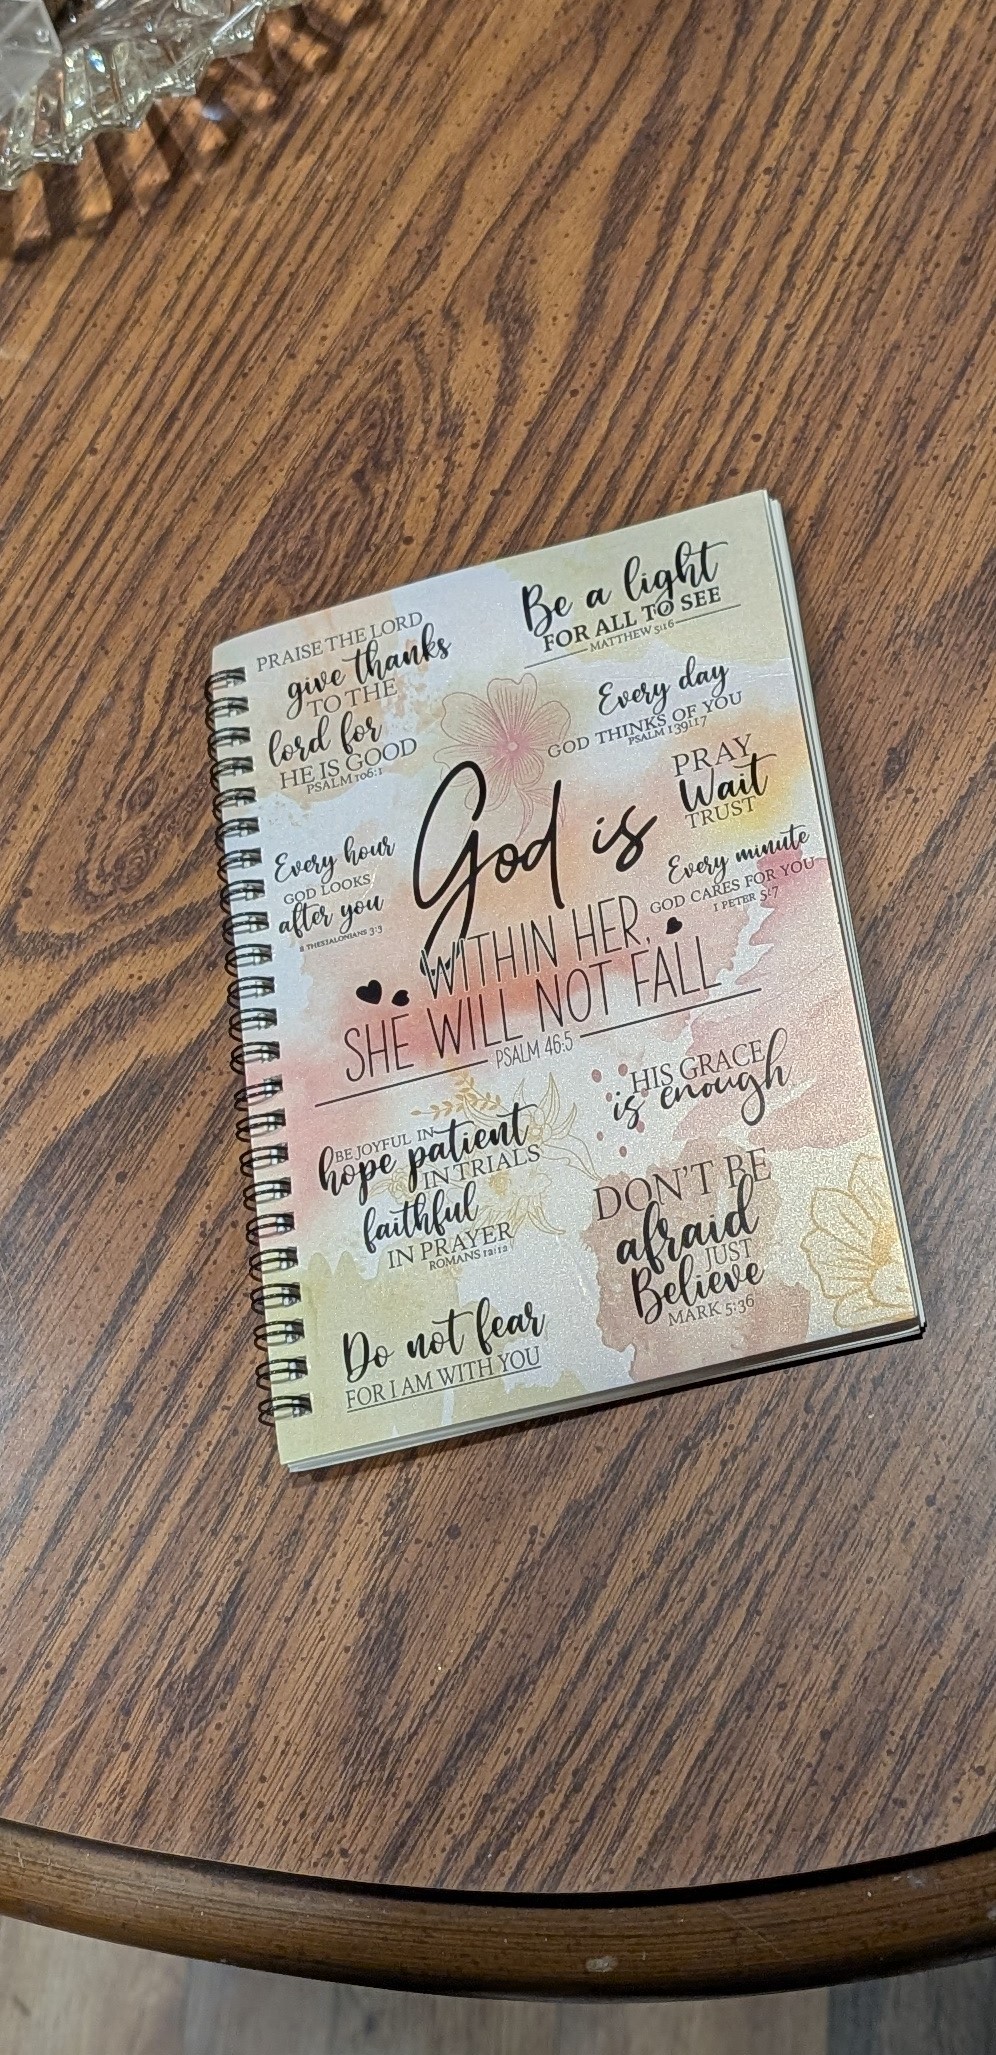 PRAISE THE LORD
give thanks
TO THE
lord for
HE IS GOOD
PSALM 106:1
Be a light
FOR ALL TO SEE
MATTHEW 5:16
Every day
GOD THINKS OF YOU
PSALM 139:17
PRAY
Wait
TRUST
Every hour
GOD LOOKS
after you
II THESSALONIANS 3:3
Every minute
GOD CARES FOR YOU
1 PETER 5:7
God is
WITHIN HER,
SHE WILL NOT FALL
PSALM 46:5
HIS GRACE
is enough
BE JOYFUL IN
hope patient
IN TRIALS
faithful
IN PRAYER
ROMANS 12:12
DON'T BE
afraid
JUST
Believe
MARK 5:36
Do not fear
FOR I AM WITH YOU